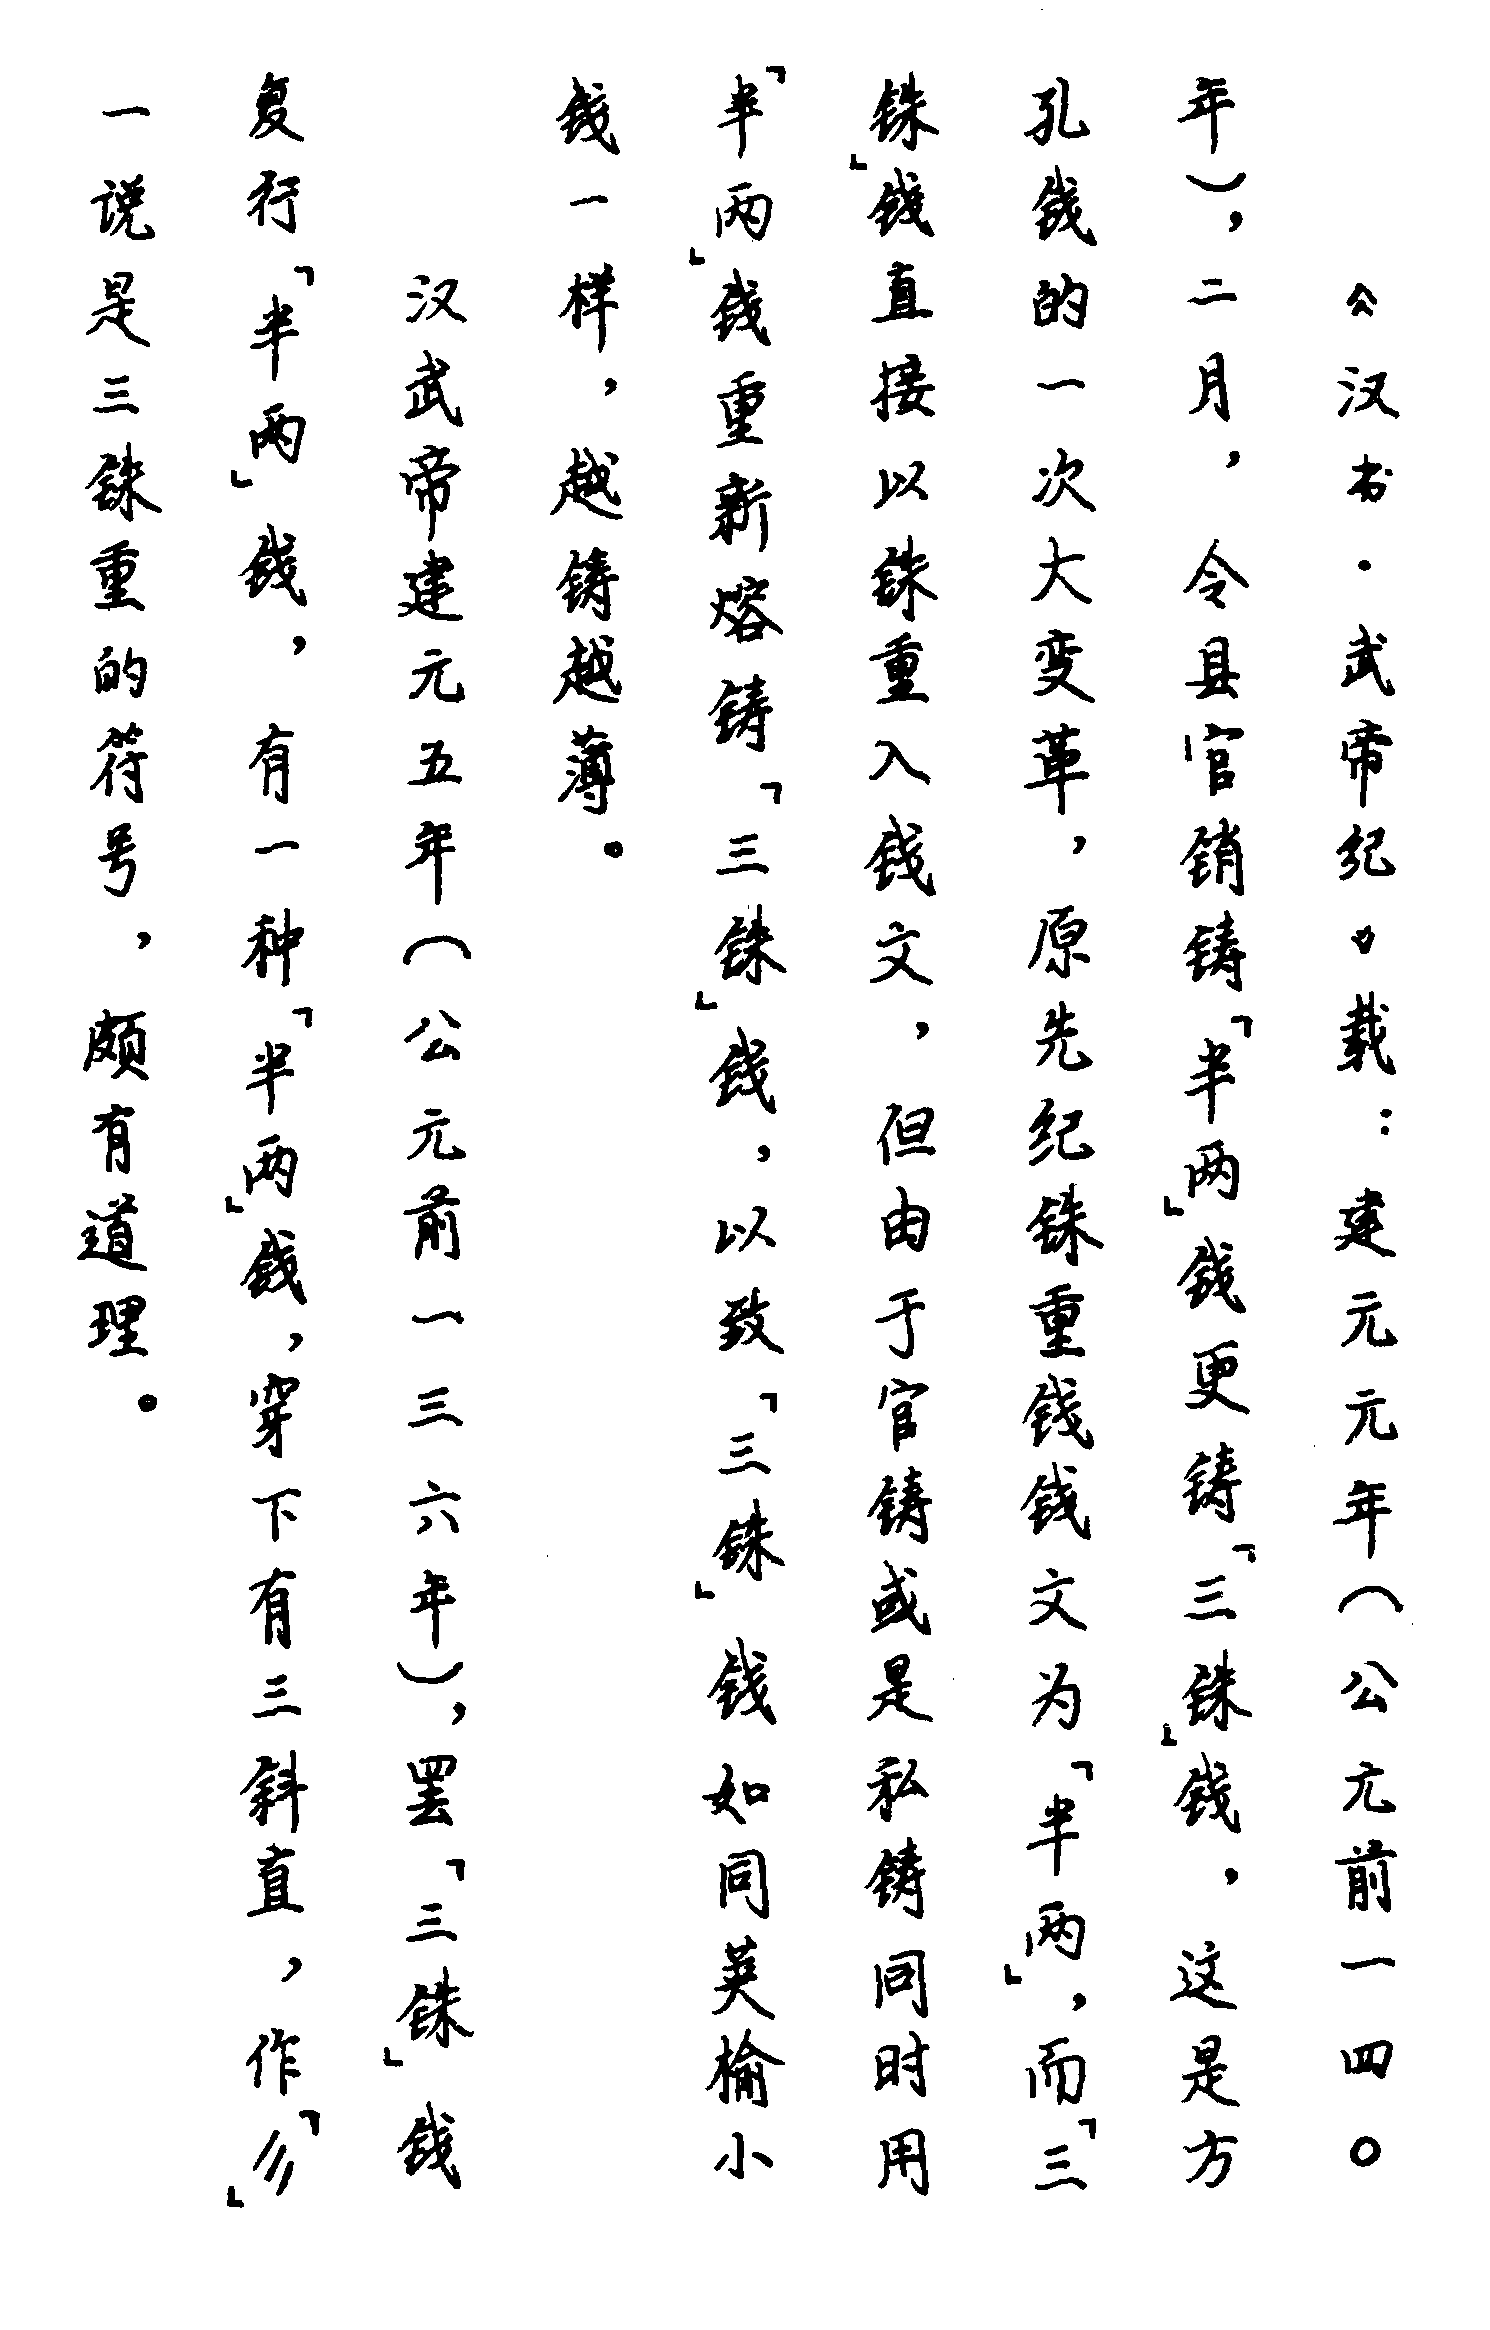 《汉书·武帝纪》载：建元元年（公元前一四〇
年），二月，令县官销铸「半两」钱更铸「三铢」钱，这是方
孔钱的一次大变革，原先纪铢重钱钱文为「半两」，而「三
铢」钱直接以铢重入钱文，但由于官铸或是私铸同时用
「半两」钱重新熔铸「三铢」钱，以致「三铢」钱如同荚榆小
钱一样，越铸越薄。
汉武帝建元五年（公元前一三六年），罢「三铢」钱
复行「半两」钱，有一种「半两」钱，穿下有三斜直，作「彡」
一说是三铢重的符号，颇有道理。